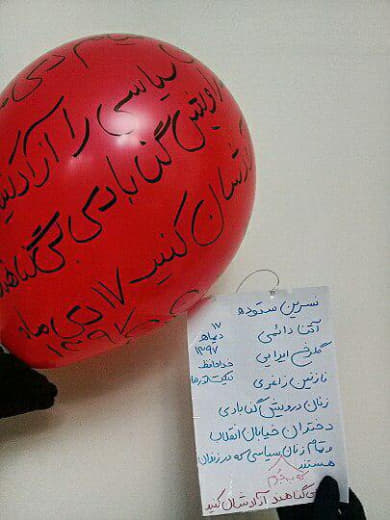 سیاسی را آزاد کنید
دراویش گنابادی بی‌گناهند
آزادشان کنید ۱۷ دی ماه
۱۳۹۷
نسرین ستوده
آتنا دائمی
گلرخ ایرایی
نازنین زاغری
زنان درویش گنابادی
دختران خیابان انقلاب
و تمام زنان سیاسی که در زندان
هستند
بی گناهند آزادشان کنید
۱۷
دیماه
۱۳۹۷
خداحافظ